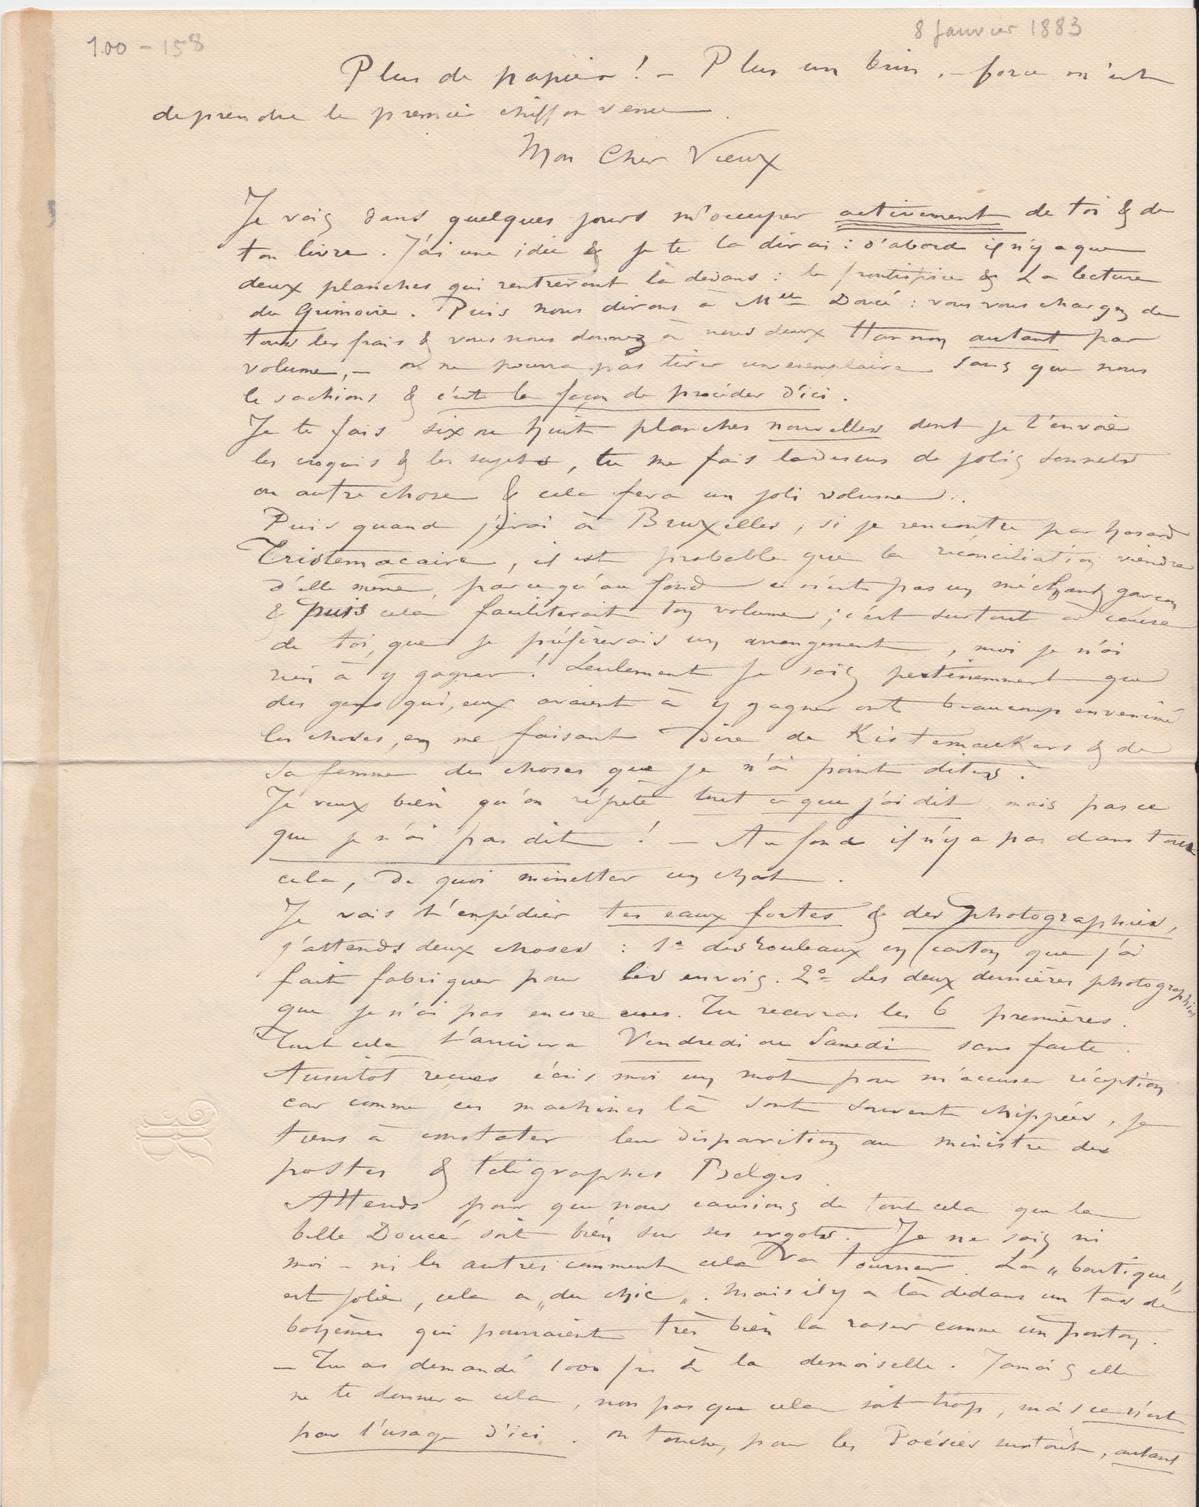 100 - 158
8 Janvier 1883
Plus de papier ! — Plus un brin, — force m'est
de prendre le premier chiffon venu.
Mon Cher Vieux
Je vais dans quelques jours m'occuper activement de toi & de
ton livre. J'ai une idée & je te la dirai : d'abord il n'y a que
deux planches qui rentreront là dedans : le frontispice & La lecture
du Grimoire. Puis nous dirons à Melle Doucé : vous vous chargez de
tous les frais & vous nous donnez à nous deux Hannon autant par
volume, — on ne pourra pas tirer un exemplaire sans que nous
le sachions & c'est la façon de procéder d'ici.
Je te fais six ou huit planches nouvelles dont je t'envoie
les croquis & les sujets, tu me fais ladessus de jolis sonnets
ou autre chose & cela fera un joli volume.
Puis quand j'irai à Bruxelles, si je rencontre par hasard
Tristemacaire, il est probable que la réconciliation viendra
d'elle même, parcequ'au fond ce n'est pas un méchant garçon
& puis cela faciliterait ton volume ; c'est surtout à cause
de toi, que je préférerais un arrangement, moi je n'ai
rien à y gagner ! Seulement je sais pertinemment que
des gens qui, eux avaient à y gagner ont beaucoup envenimé
les choses, en me faisant dire de Kistemaekers & de
sa femme des choses que je n'ai point dites.
Je veux bien qu'on répète tout ce que j'ai dit mais pas ce
que je n'ai pas dit ! — Au fond il n'y a pas dans tout
cela, de quoi minetter un chat.
Je vais t'expédier tes eaux fortes & des photographies,
j'attends deux choses : 1° des rouleaux en carton que j'ai
fait fabriquer pour les envois. 2° les deux dernières photographies
que je n'ai pas encore eues. Tu recevras les 6 premières.
Tout cela t'arrivera Vendredi ou Samedi sans faute.
Aussitôt reçues écris moi un mot pour m'accuser réception
car comme ces machines là sont souvent chippées, je
tiens à constater leur disparition au ministre des
postes & télégraphes Belges.
Attends pour que nous causions de tout cela que la
belle Doucé soit bien sur ses ergots. Je ne sais ni
moi — ni les autres comment cela va tourner. La „ boutique „
est jolie, cela a „ du chic „. Mais il y a là dedans un tas de
bohèmes qui pourraient très bien la raser comme un ponton.
— Tu as demandé 1000 frs à la demoiselle. Jamais elle
ne te donnera cela, non pas que cela soit trop, mais ce n'est
pas l'usage d'ici. On touche, pour les Poésies surtout, autant